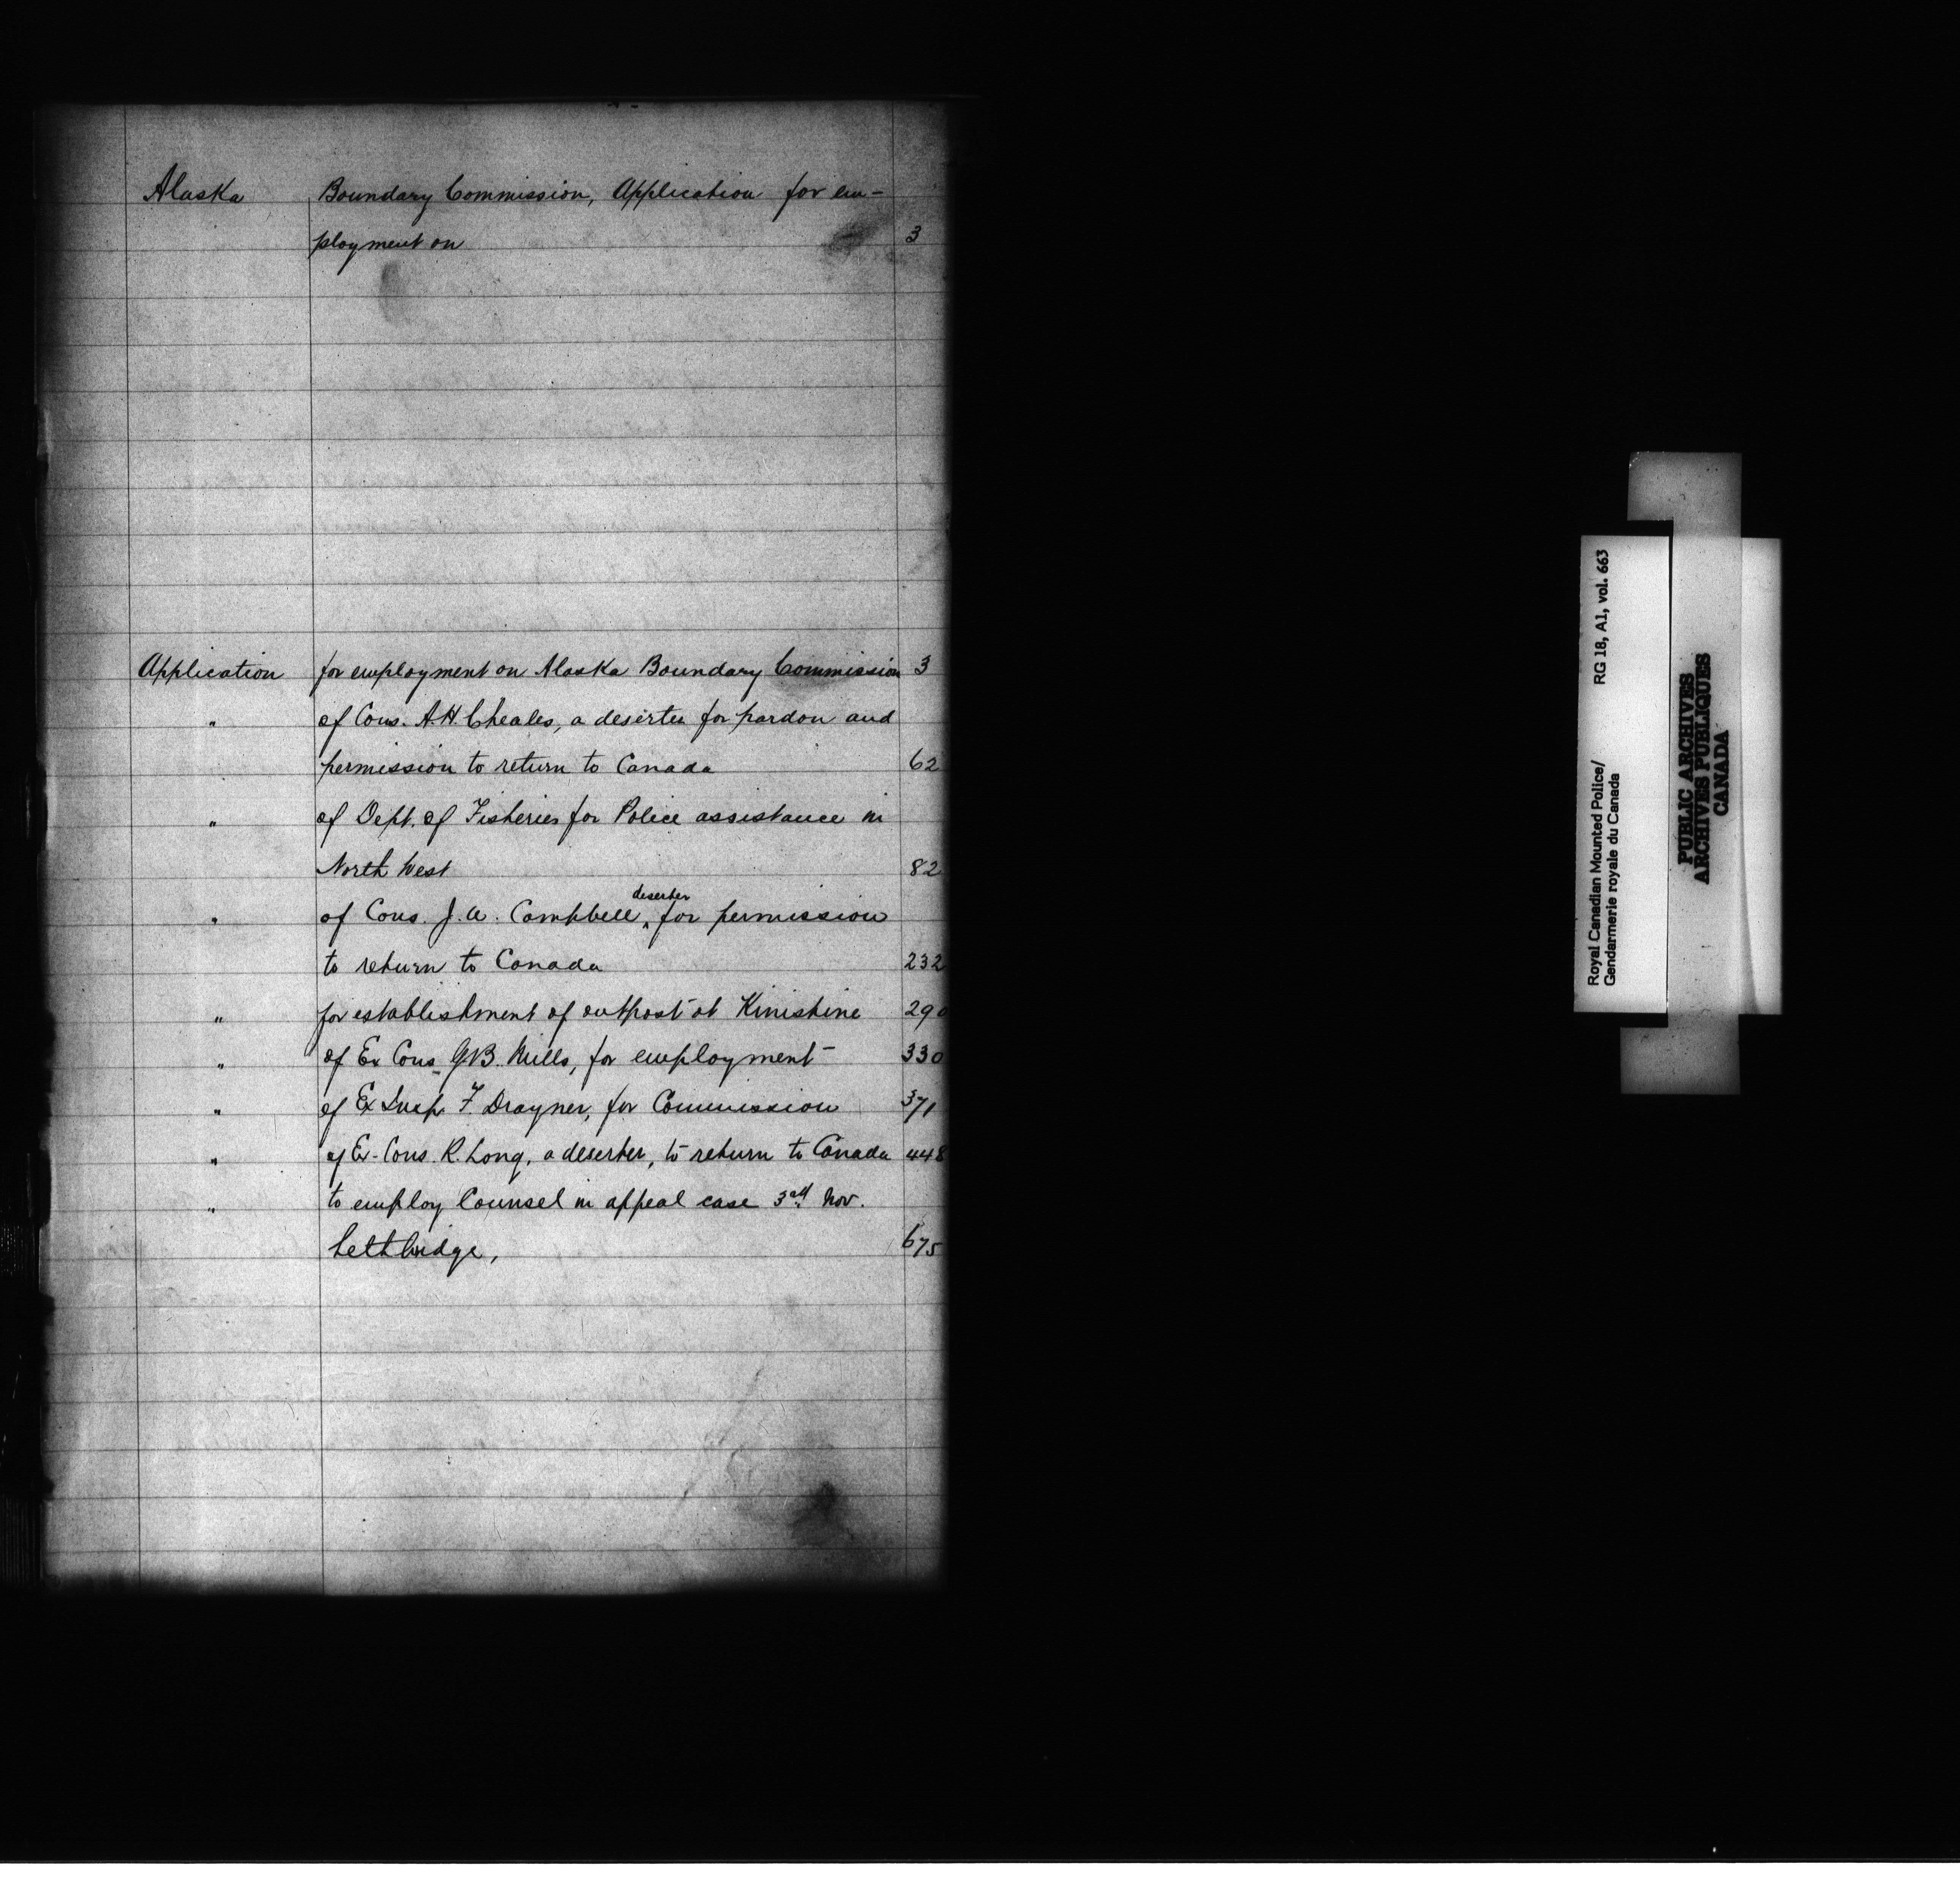 Alaska Boundary Commission, Application for em-
ployment on 3
Application for employment on Alaska Boundary Commission 3
" of Cons. A.H. Cheales, a deserter for pardon and
permission to return to Canada 62
" of Dept. of Fisheries for Police assistance in
North West 82
" of Cons. J. A. Campbell, deserter for permission
to return to Canada 232
" for establishment of outpost at Kinistine 290
" of Ex Cons G.B. Mills, for employment 330
" of Ex Insp. F Drayner, for Commission 371
" of Ex-Cons. R. Long, a deserter, to return to Canada 448
" to employ Counsel in appeal case 3rd Nov.
Lethbridge, 675
Royal Canadian Mounted Police/ RG 18, A1, vol. 663
Gendarmerie royale du Canada
PUBLIC ARCHIVES
ARCHIVES PUBLIQUES
CANADA